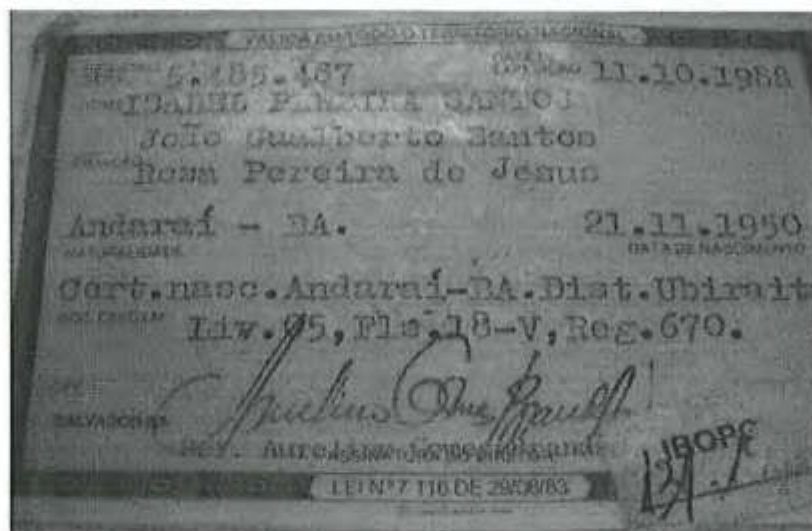 VÁLIDA EM TODO O TERRITÓRIO NACIONAL
5.485.467 11.10.1988
ISABEL PEREIRA SANTOS
João Gualberto Santos
Rosa Pereira de Jesus
Andaraí - BA. 21.11.1950
NATURALIDADE DATA DE NASCIMENTO
Cert.nasc.Andaraí-BA.Dist.Ubirait
DOC ORIGEM Liv.05,Fls.18-V,Reg.670.
CPF
SALVADOR-BA
Bel. Aurelino
LEI Nº 7.116 DE 29/08/83